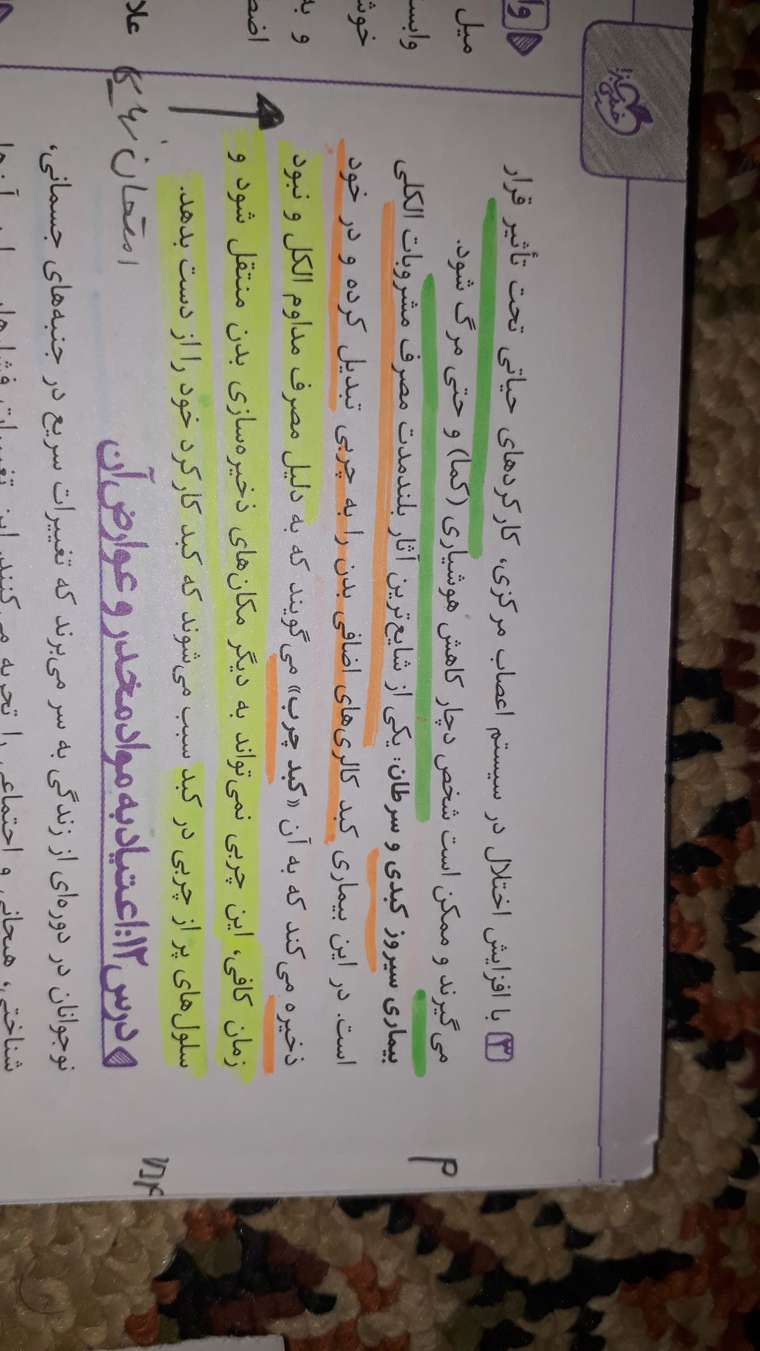 ۳ با افزایش اختلال در سیستم اعصاب مرکزی، کارکردهای حیاتی تحت تأثیر قرار
می‌گیرند و ممکن است شخص دچار کاهش هوشیاری (کما) و حتی مرگ شود.
بیماری سیروز کبدی و سرطان: یکی از شایع‌ترین آثار بلندمدت مصرف مشروبات الکلی
است. در این بیماری کبد کالری‌های اضافی بدن را به چربی تبدیل کرده و در خود
ذخیره می‌کند که به آن «کبد چرب» می‌گویند که به دلیل مصرف مداوم الکل و نبود
زمان کافی، این چربی نمی‌تواند به دیگر مکان‌های ذخیره‌سازی بدن منتقل شود و
سلول‌های پر از چربی در کبد سبب می‌شوند که کبد کارکرد خود را از دست بدهد.
امتحان نهایی
درس ۱۲: اعتیاد به مواد مخدر و عوارض آن
نوجوانان در دوره‌ای از زندگی به سر می‌برند که تغییرات سریع در جنبه‌های جسمانی،
شناختی، هیجانی و اجتماعی را تجربه می‌کنند. این تغییرات
میل
خوش
و به
علا